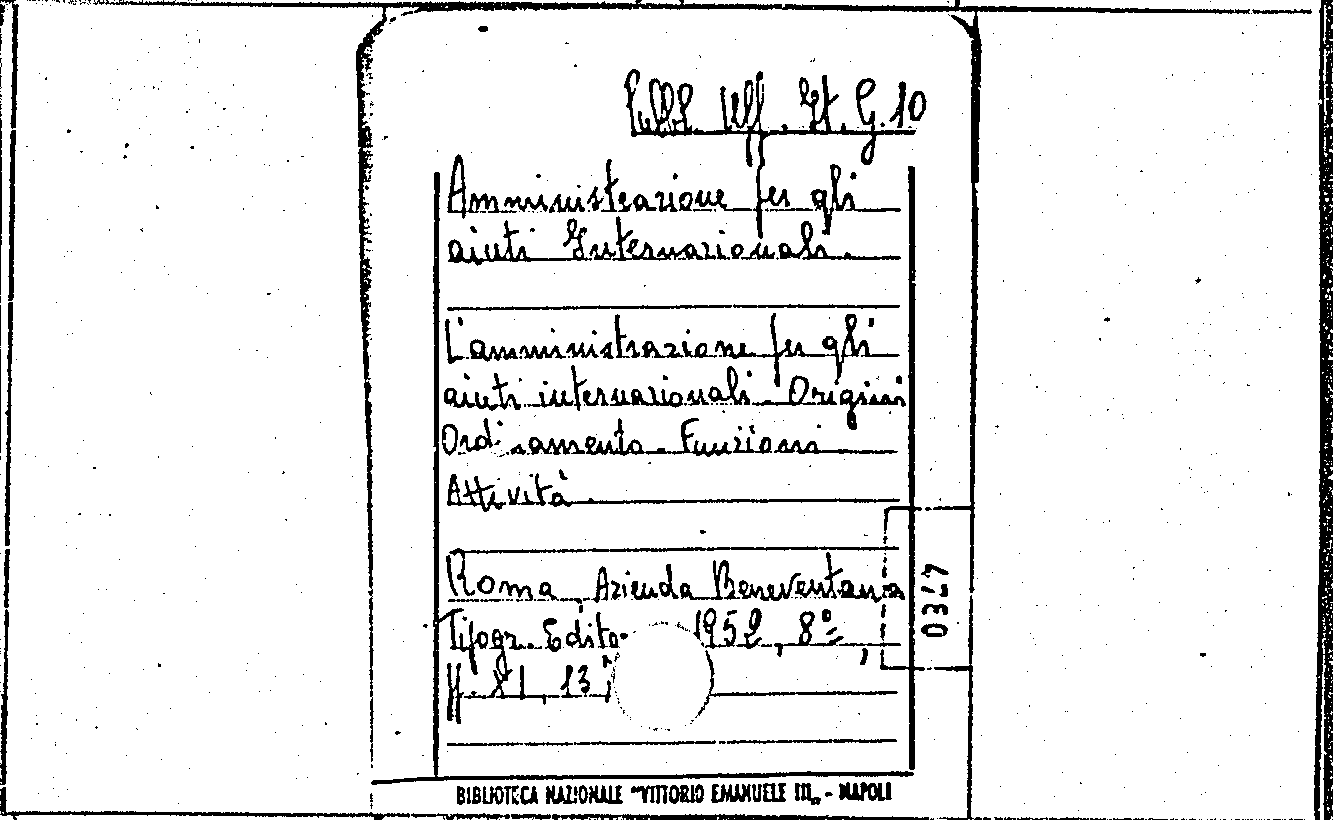 Pubbl. Uff. It. G. 10
Amministrazione per gli
aiuti Internazionali.
L'amministrazione per gli
aiuti internazionali. Origini
Ordinamento. Funzioni
Attività.
Roma, Azienda Beneventana
Tipogr. Edito. 1952, 8º,
pp. 81, 13
0347
BIBLIOTECA NAZIONALE "VITTORIO EMANUELE III„ - NAPOLI